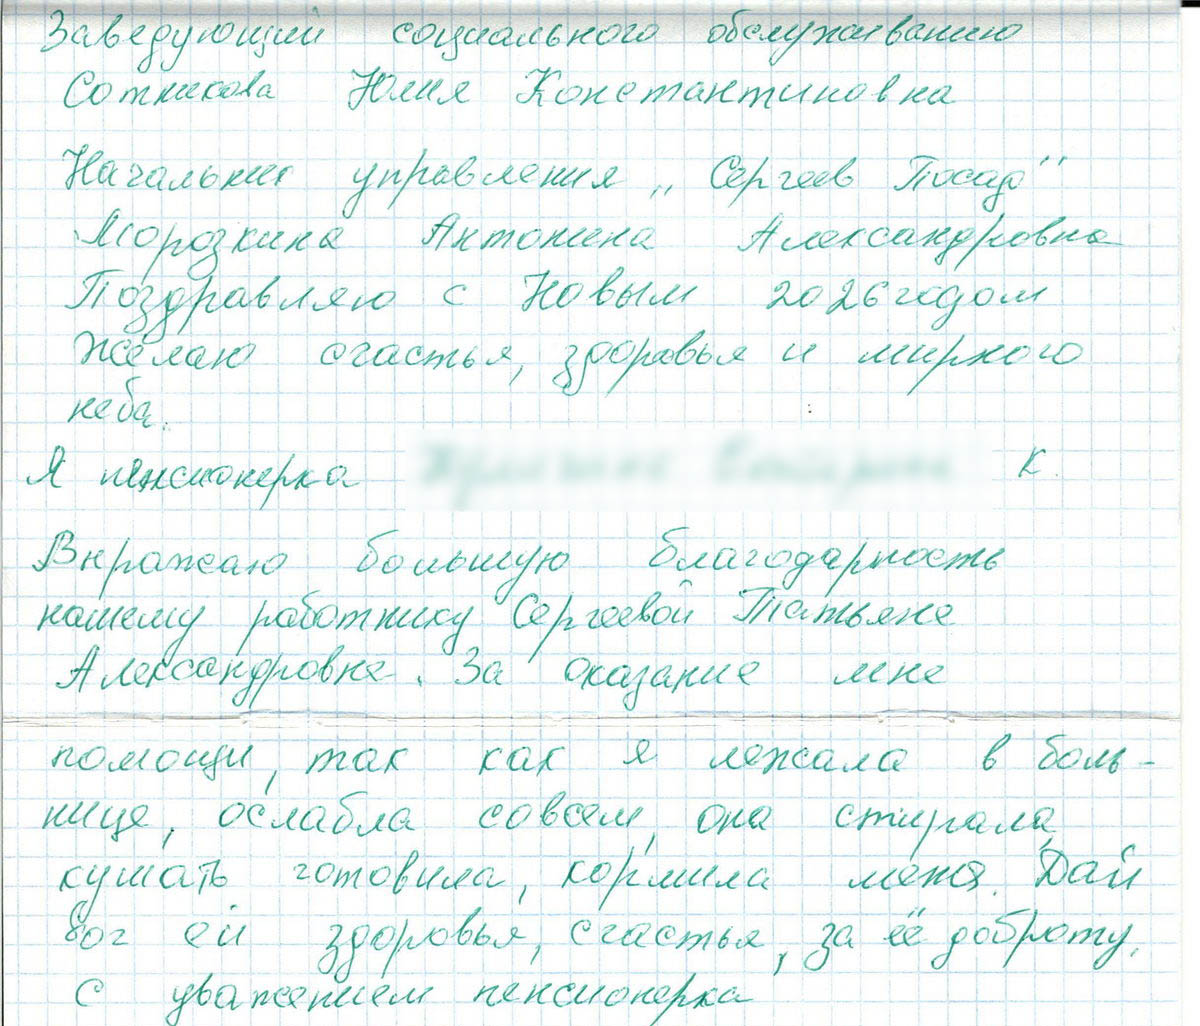 Заведующий социального обслуживанию
Сотникова Юлия Константиновна
Начальник управления „ Сергеев Посад"
Морозкина Антонина Александровна
Поздравляю с Новым 2026 годом
Желаю счастья, здоровья и мирного
неба.
Я пенсионерка К.
Выражаю большую благодарность
нашему работнику Сергеевой Татьяне
Александровне. За оказание мне
помощи, так как я лежала в боль-
нице, ослабла совсем, она стирала,
кушать готовила, кормила меня. Дай
бог ей здоровья, счастья, за её доброту.
С уважением пенсионерка